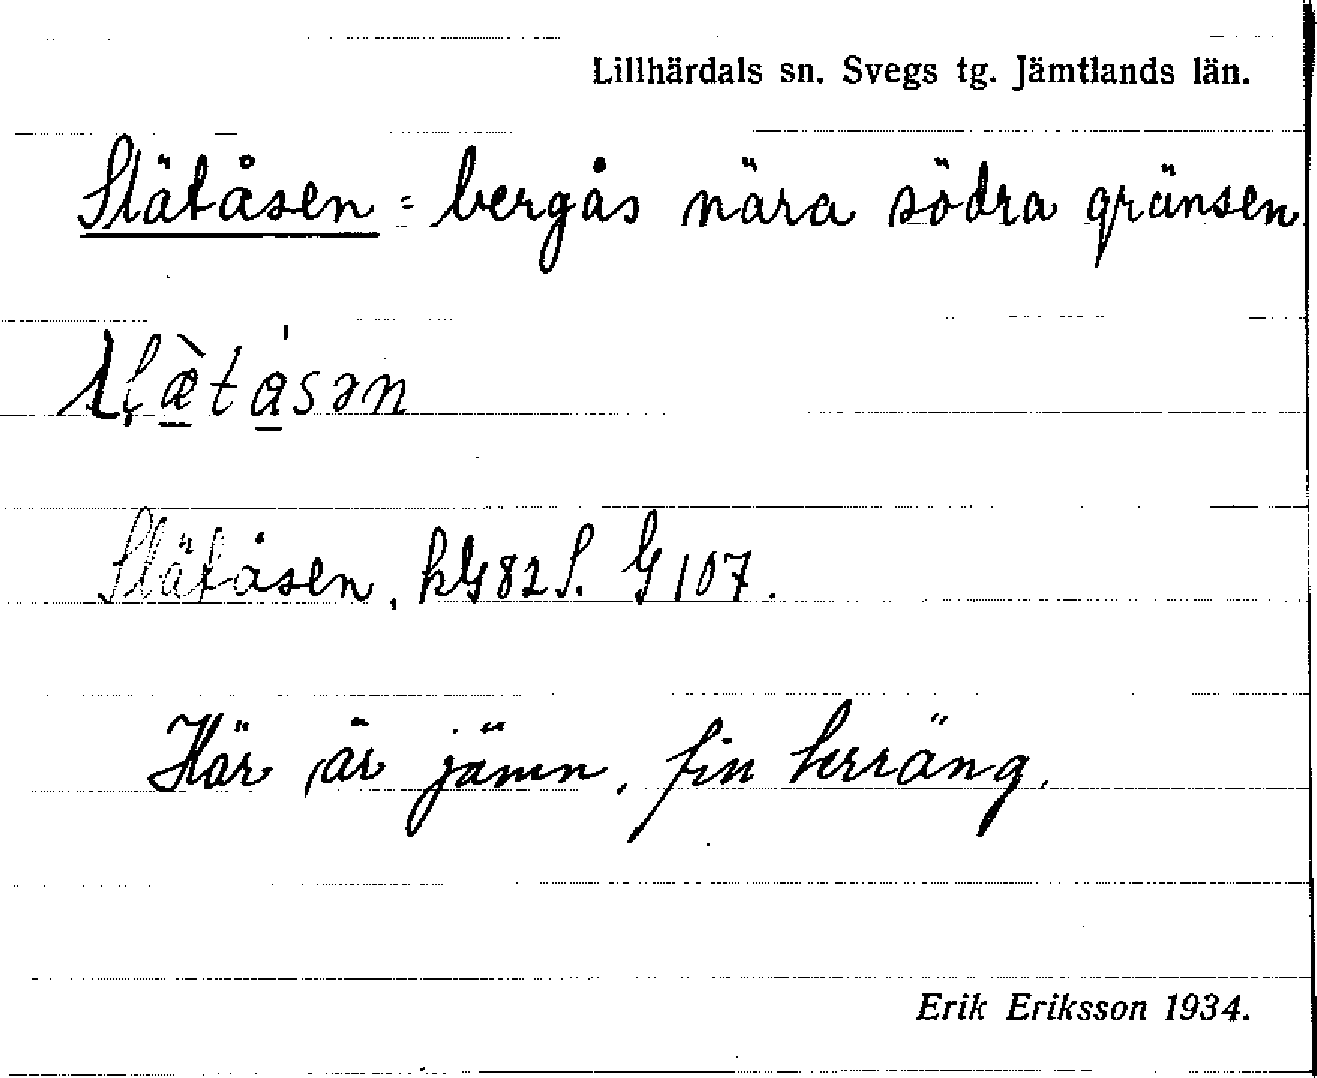 Lillhärdals sn. Svegs tg. Jämtlands län.
Slätåsen = bergås nära södra gränsen.
Slätåsen, kbl 82 S. G 107.
Här är jämn, fin terräng.
Erik Eriksson 1934.